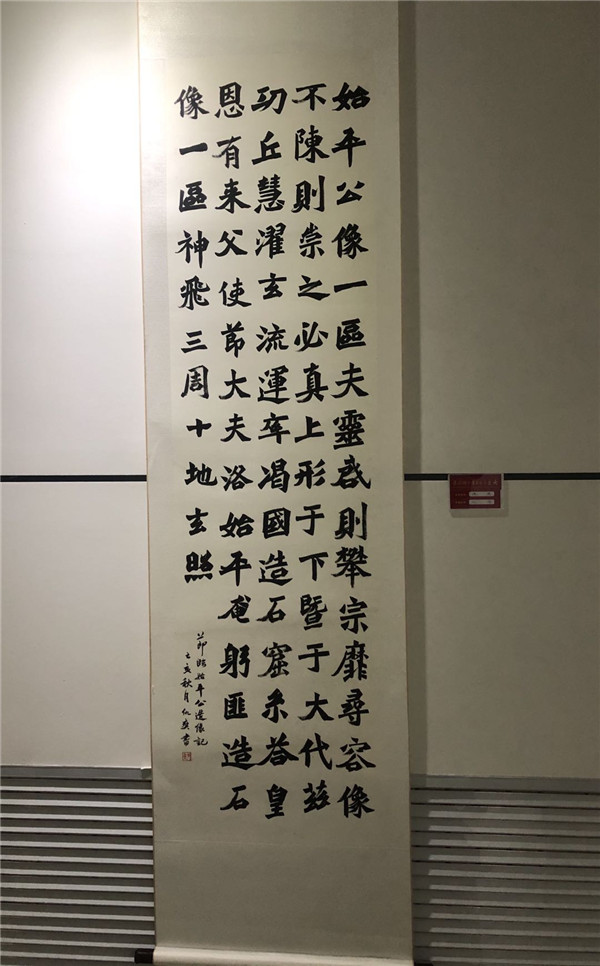 始平公像一區夫靈啟則攀宗靡尋容像
不陳則崇之必真上形于下暨于大代茲
功丘慧濯玄流運率竭國造石窟糸答皇
恩有来父使節大夫洛始平奄躬匪造石
像一區神飛三周十地玄照
節臨始平公造像記
己亥秋月書